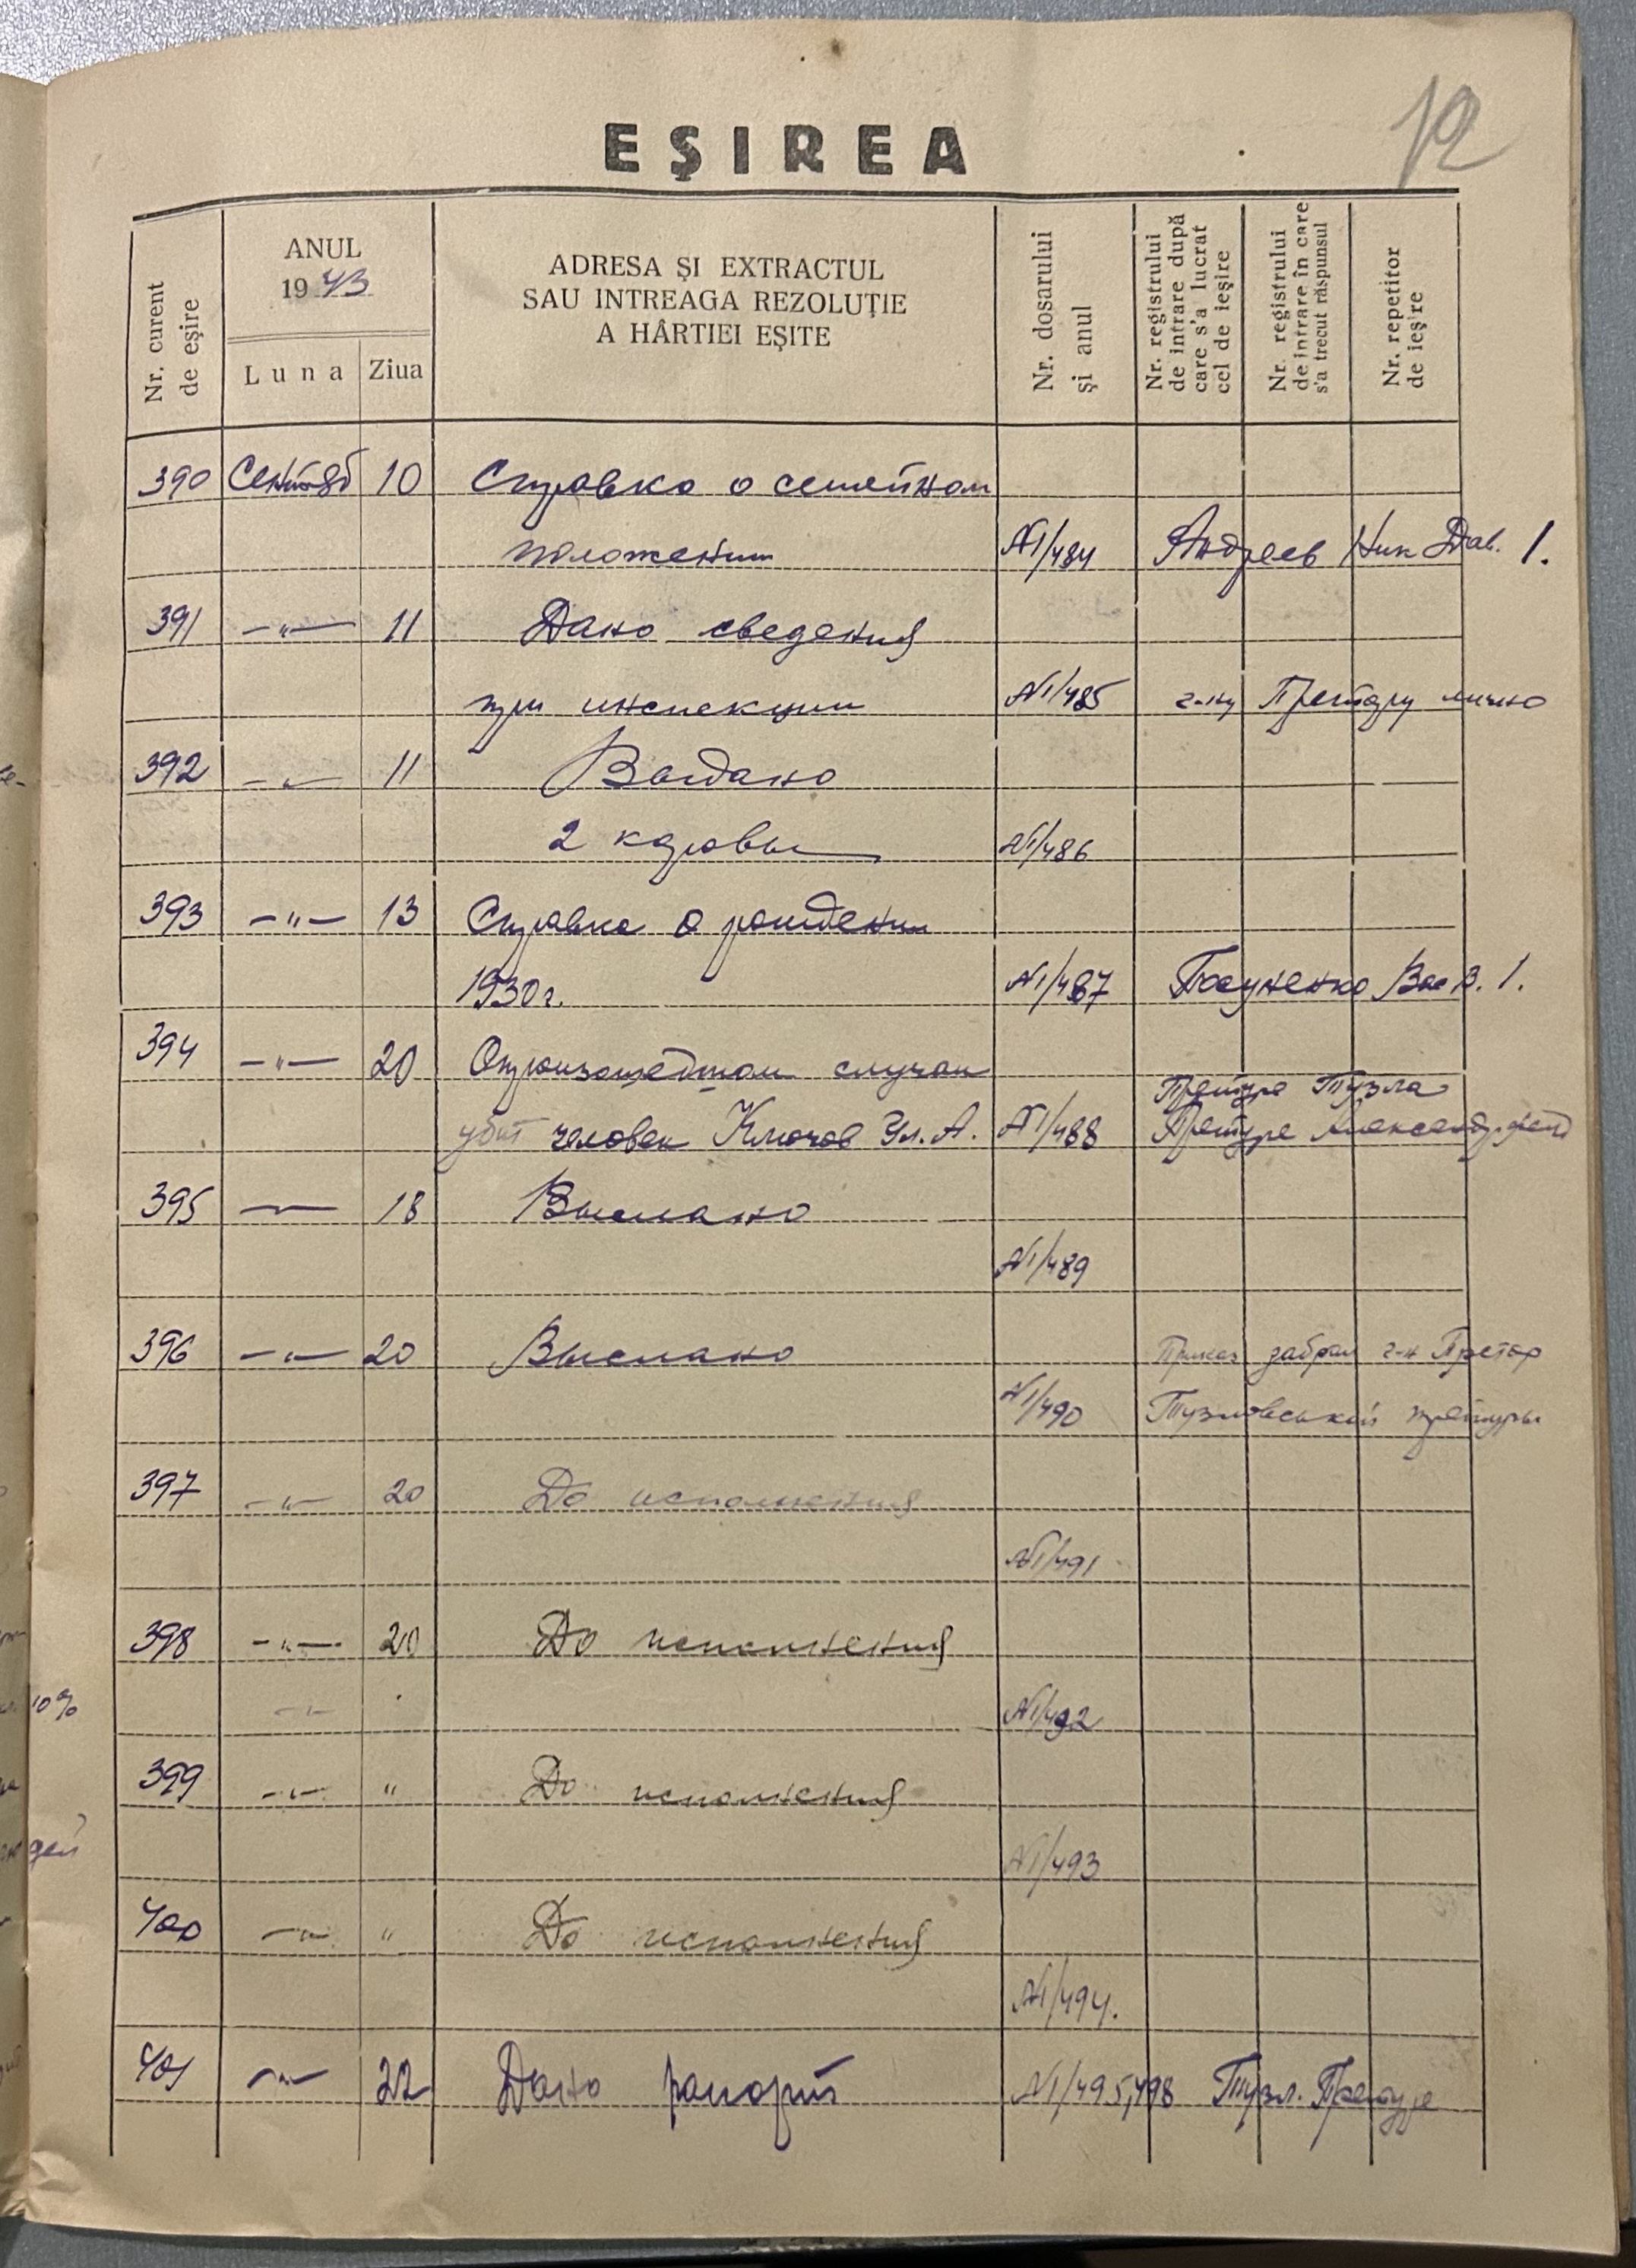 12
EȘIREA
Nr. curent de eșire
ANUL
1943
Luna
Ziua
ADRESA ȘI EXTRACTUL
SAU INTREAGA REZOLUȚIE
A HÂRTIEI EȘITE
Nr. dosarului și anul
Nr. registrului de intrare după care s'a lucrat cel de ieșire
Nr. registrului de intrare în care s'a trecut răspunsul
Nr. repetitor de ieșire
390 Сентяб 10 Справка о семейном
положении №1/484 Андреев Ник Дав. 1.
391 —"— 11 Дано сведения
при инспекции №1/485 г-ну Претору лично
392 —"— 11 Выдано
2 коровы №1/486
393 —"— 13 Справка о рождении
1930г. №1/487 Вас В. 1.
394 —"— 20 О произошедшом случаи
Претуре Тузла
убит человек Ключов Ул. А. №1/488 Претуре
395 —"— 18 Выслано
№1/489
396 —"— 20 Выслано Приказ забрал г-н Претор
№1/490 Тузловської претуры
397 —"— 20 До исполнения
№1/491
398 —"— 20 До исполнения
—"— №1/492
399 —"— " До исполнения
№1/493
400 —"— " До исполнения
№1/494.
401 —"— 22 Дано рапорт №1/495,498 Тузл. Претуре
10%
дей